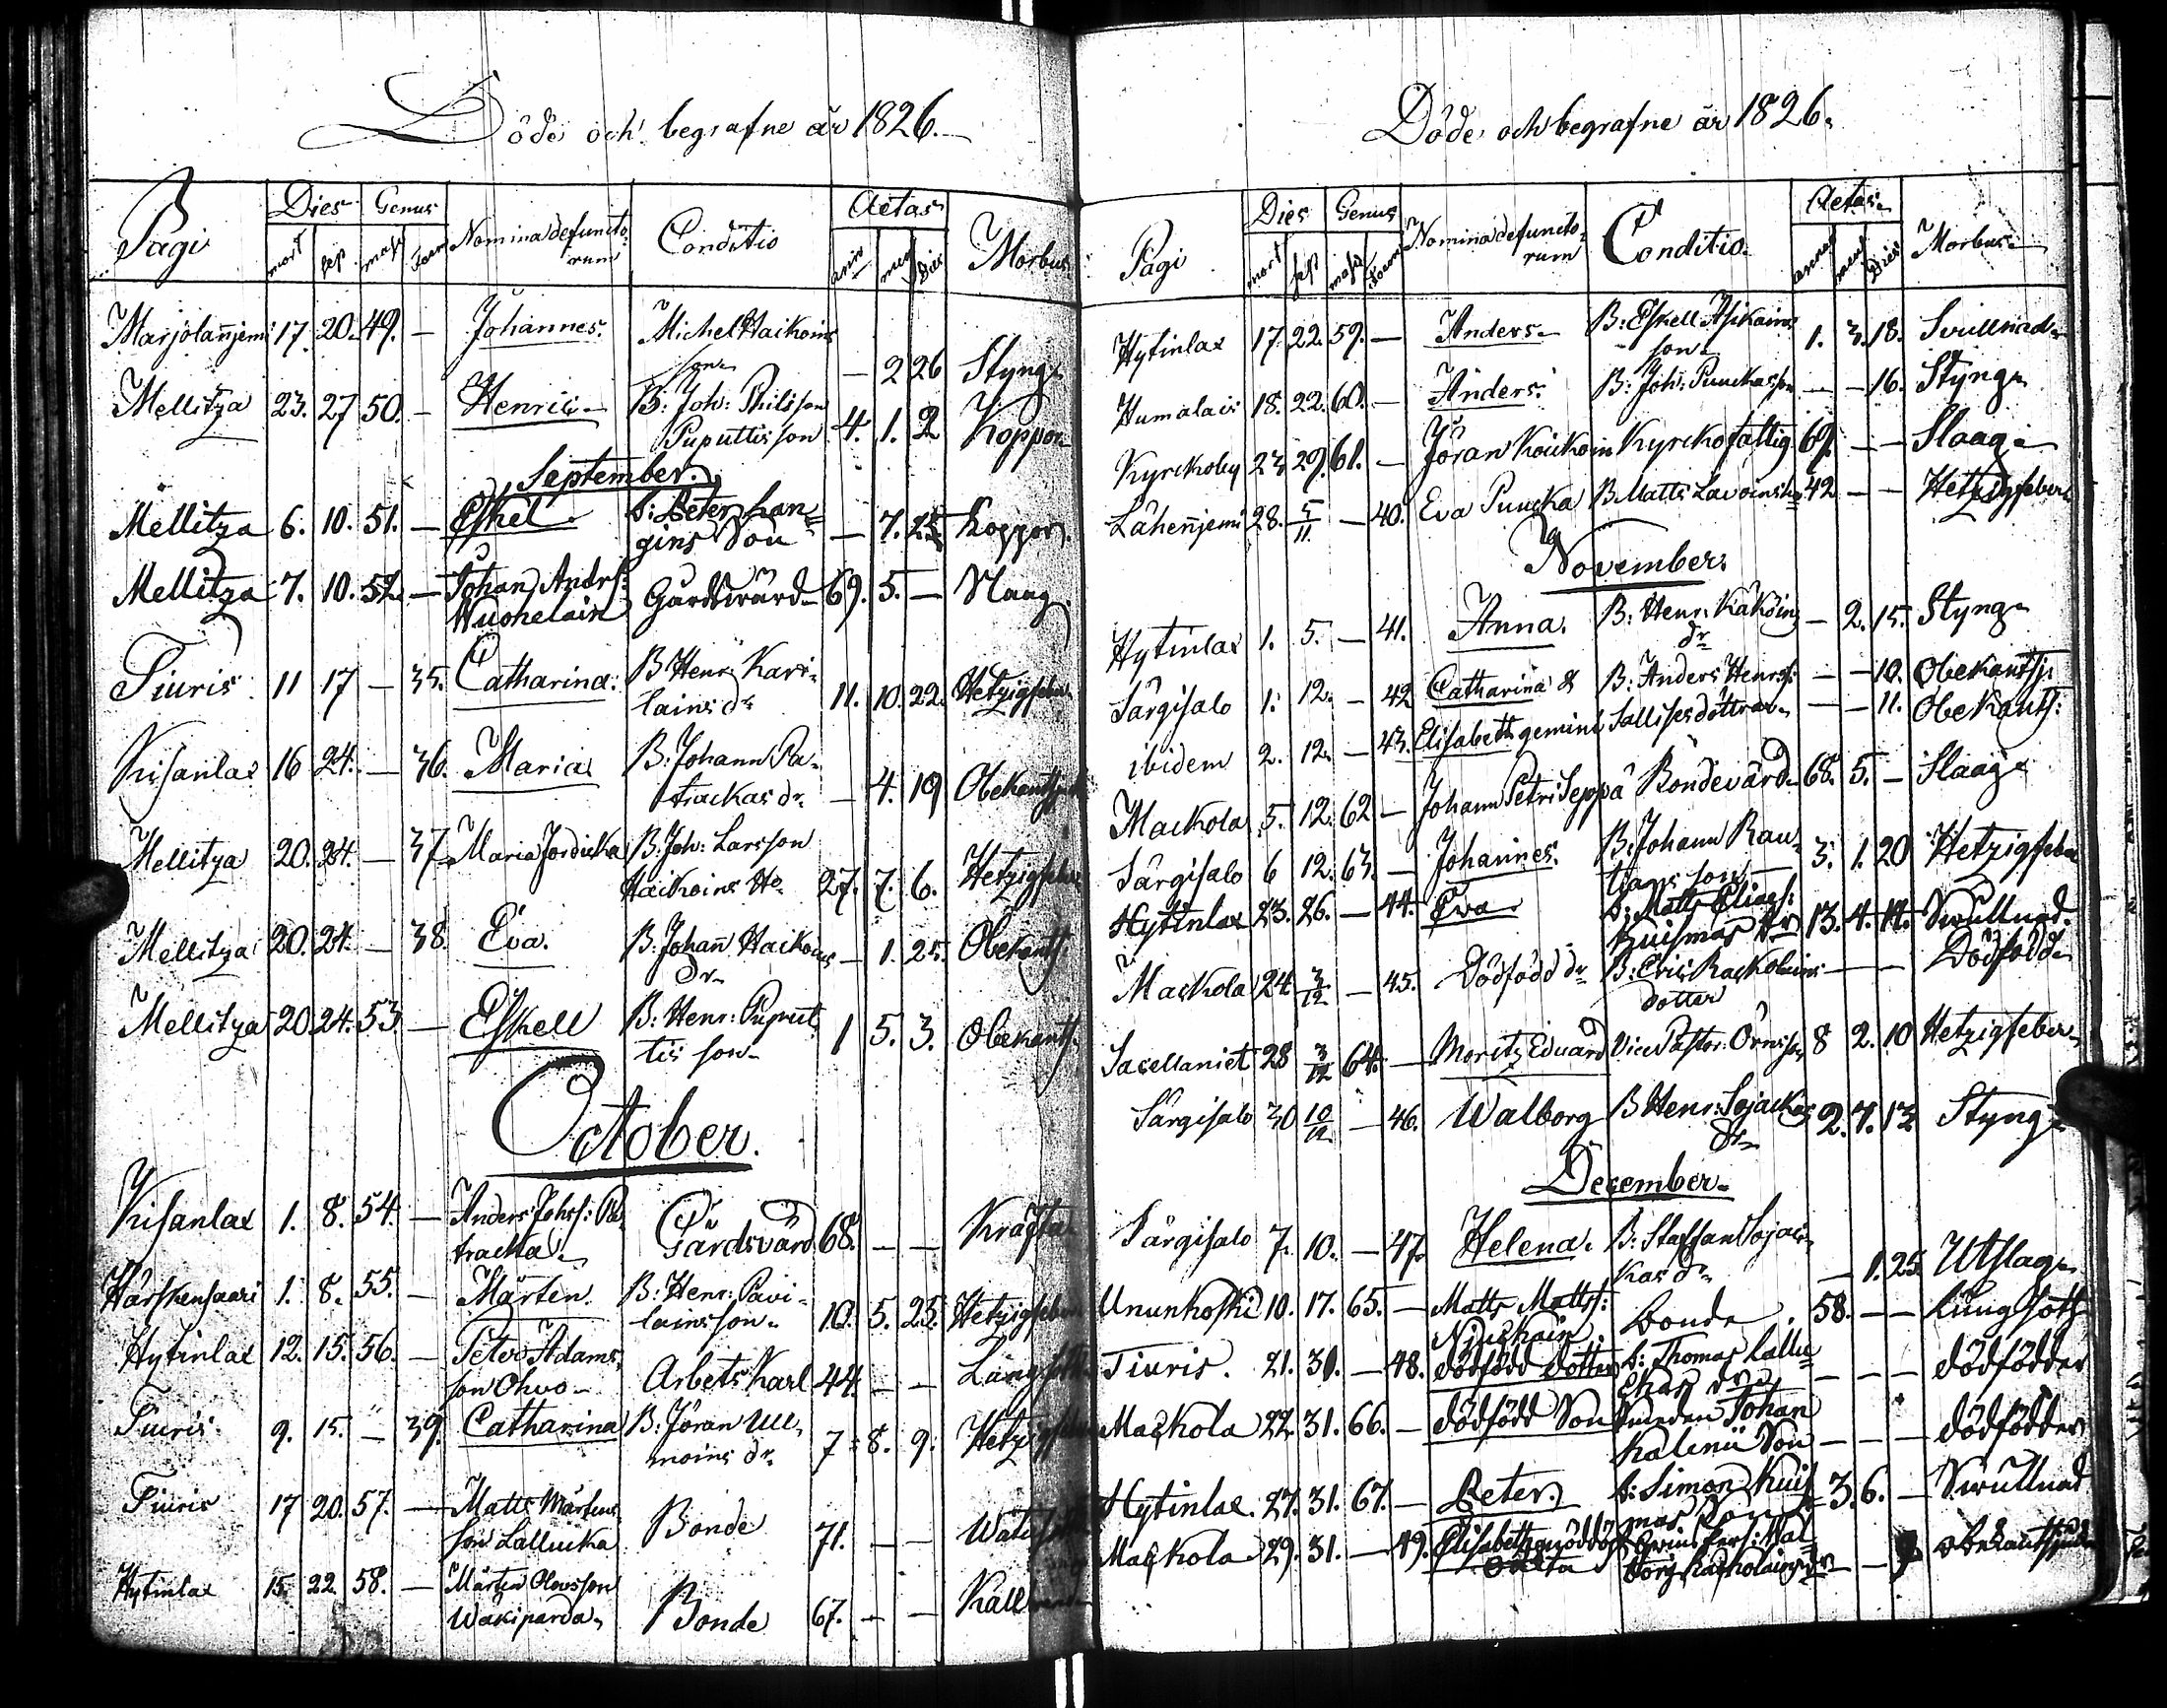 Döde och begrafne år 1826.
Pagi Dies Genus Nomina defuncto- Conditio Aetas Morbus
mort sep mase Foem rum ann men Dies
Marjolanjemi 17. 20. 49. — Johannes. Michel Haikoins
son — 2 26 Styng
Mellitza 23. 27 50. — Henric B: Joh: Philsson
Puputtis son 4. 1. 2 Koppor
September.
Mellitza 6. 10. 51. — Eskel b: Peter Lan=
gins Son — 7. Koppor.
Mellitza 7. 10. 52. — Johan Andrs: Gårdswärd 69. 5. — Slaag.
Wuohelain
Tiuris 11 17 — 35. Catharina. B Henr: Kari-
lains dr 11. 10. 22. Hetzigfeber
Kisanlax 16 24. — 36. Maria B: Johann Pa-
trackas dr — 4. 19 Obekant
Mellitza 20. 24. — 37 Maria Jordicka B: Joh: Larsson
Haikoins Ho 27. 7. 6. Hetzigfeber
Mellitza 20. 24. — 38. Eva. B: Johan Haikoins — 1. 25. Obekantf
Dr
Mellitza 20. 24. 53 — Eskell B: Henr: Puput
tis son 1 5. 3. Obekantf
October.
Kisanlax 1. 8. 54. — Anders Johss: Pa- Gårdsvärd 68. — — Kräfta
trackta
Härskensaari 1. 8. 55. — Mårten. B: Henr: Pavi-
lainsson 10. 5. 25. Hetzigfeber
Hytinlax 12. 15. 56. — Peter Adams
son Ohvo Arbets Karl 44. — — Lungsot
Tiuris 9. 15. — 39. Catharina B: Jöran Ull
moins dr. 7 8. 9. Hetzigfeber
Tiuris 17 20. 57. — Matts Mårtens
son Lallucka Bonde 71. — —
Hytinlax 15. 22. 58. — Mårten Olovsson
Wäkiparda Bonde 67. — — Kall
Döde och begrafne år 1826.
Pagi Dies Genus Nomina defuncto- Conditio. Aetas Morbus
mort sep mase Foem rum annos mens Dies
Hytinlax 17. 22. 59. — Anders B: Eskell Asikains
son 1. 3. 18. Svullnad
Humalais 18. 22. 60. — Anders. B: Joh: Punckasson — — 16. Styng
Kyrckoby 23 29. 61. — Jöran Koickoin Kyrckofattig 69. — — Slaag
Lähenjemi 28. 5/11. — 40. Eva Puncka B Matts Lavoinshu 42 — — Hetzigfeber
November.
Hytinlax 1. 5. — 41. Anna. B: Henr: Kaköins — 2. 15. Styng
dr
Särgisalo 1. 12. — 42 Catharina & B: Anders Henrs: — — 10. Obekantsj:
ibidem 2. 12. — 43. Elisabeth gemini Sallises döttrar — — 11. Obekantf:
Mackola 5. 12. 62 — Johann Petri Seppä Bondevärd 68. 5. — Slaag
Särgisalo 6 12. 63. — Johannes. B: Johann Rau-
tjans son 3. 1. 20 Hetzigfeber
Hytinlax 23. 26. — 44. Eva b: Matts Eliass:
Kuismas dr 13. 4. 14. Swullnad
Mackola 24. 3/12 — 45. Dödfödd dr B: Eric Rackolains — — Dödfödd
dotter
Sacellaniet 28 3/12 64. — Moritz Eduard Vice Pastor: Örns son 8 2. 10 Hetzigfeber
Särgisalo 30 10/12 — 46. Walborg B Henr: Sojackas 2. 7. 13 Styng
dr
December.
Särgisalo 7. 10. — 47. Helena. B: Staffan Sojac-
kas dr — 1. 25 Utslag
Ununkoski 10. 17. 65. — Matts Matts: Bonde. 58. — — Lungsoth
Niuckain
Tiuris. 21. 31. — 48. dödfödd dotter b: Thomas Lallu=
ckas dr — — — dödfödder
Mackola 22. 31. 66. — dödfödd Son Smeden Johan
Kalenii Son — — — dödfödder
Hytinlax. 27. 31. 67. — Peter. b: Simon Kuis
mas Son 3. 6. — Swullnad
Mackola 29. 31. — 49. Elisabeth